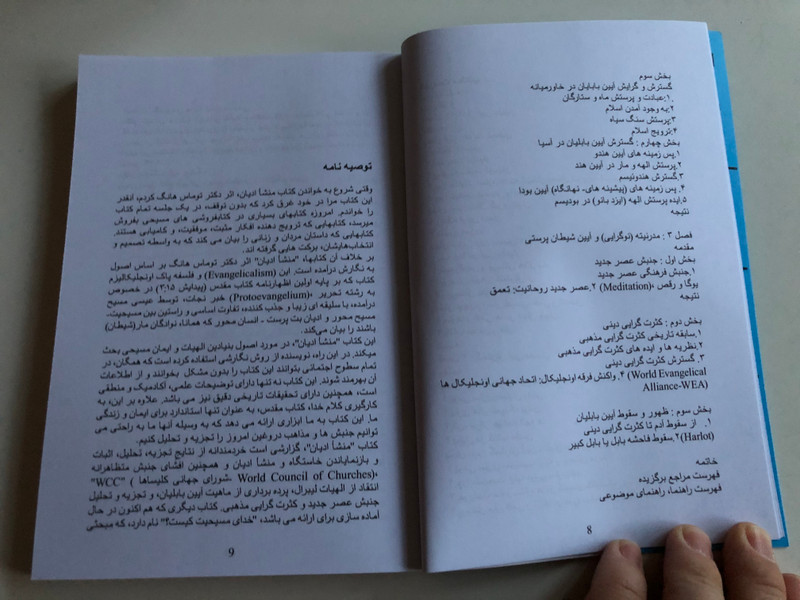 بخش سوم
گسترش و گرایش آیین بابلیان در خاورمیانه
۱.عبادت و پرستش ماه و ستارگان
۲.به وجود آمدن اسلام
۳.پرستش سنگ سیاه
۴.ترویج اسلام
بخش چهارم : گسترش آیین بابلیان در آسیا
۱.پس زمینه های آیین هندو
۲.پرستش الهه و مار در آیین هند
۳.گسترش هندوئیسم
۴. پس زمینه های (پیشینه های- نهانگاه) آیین بودا
۵.ایده پرستش الهه (ایزد بانو) در بودیسم
نتیجه
فصل ۳ : مدرنیته (نوگرایی) و آیین شیطان پرستی
مقدمه
بخش اول : جنبش عصر جدید
۱.جنبش فرهنگی عصر جدید
یوگا و رقص ،(Meditation) ۲.عصر جدید روحانیت: تعمق
نتیجه
بخش دوم : کثرت گرایی دینی
۱.سابقه تاریخی کثرت گرایی مذهبی
۲.نظریه ها و ایده های کثرت گرایی مذهبی
۳. گسترش کثرت گرایی دینی
(World Evangelical ۴. واکنش فرقه اونجلیکال: اتحاد جهانی اونجلیکال ها
Alliance-WEA)
بخش سوم : ظهور و سقوط آیین بابلیان
۱. از سقوط آدم تا کثرت گرایی دینی
(Harlot)۲.سقوط فاحشه بابل یا بابل کبیر
خاتمه
فهرست مراجع برگزیده
فهرست راهنما، راهنمای موضوعی
8
توصیه نامه
وقتی شروع به خواندن کتاب منشأ ادیان، اثر دکتر توماس هانگ کردم، آنقدر
این کتاب مرا در خود غرق کرد که بدون توقف، در یک جلسه تمام کتاب
را خواندم. امروزه کتابهای بسیاری در کتابفروشی های مسیحی بفروش
میرسد، کتابهایی که ترویج دهنده افکار مثبت، موفقیت، و کامیابی هستند.
کتابهایی که داستان مردان و زنانی را بیان می کند که به واسطه تصمیم و
انتخاب‌هایشان، برکت هایی گرفته اند.
بر خلاف آن کتابها، "منشأ ادیان" اثر دکتر توماس هانگ بر اساس اصول
و فلسفه پاک اونجلیکالیزم (Evangelicalism) به نگارش درآمده است. این
کتاب که بر پایه اولین اظهارنامه کتاب مقدس (پیدایش ۳:۱۵) در خصوص
خبر نجات، توسط عیسی مسیح (Protoevangelium) به رشته تحریر
درآمده، با سلیقه ای زیبا و جذب کننده، تفاوت اساسی و راستین بین مسیحیت-
مسیح محور و ادیان بت پرست - انسان محور که همانا، نوادگان مار(شیطان)
باشند را بیان می‌کند.
این کتاب "منشأ ادیان"، در مورد اصول بنیادین الهیات و ایمان مسیحی بحث
میکند. در این راه، نویسنده از روش نگارشی استفاده کرده است که همگان، در
تمام سطوح اجتماعی بتوانند این کتاب را بدون مشکل بخوانند و از اطلاعات
آن بهرمند شوند. این کتاب نه تنها دارای توضیحات علمی، آکادمیک و منطقی
است، همچنین دارای تحقیقات تاریخی دقیق نیز می باشد. علاوه بر این، به
کارگیری کلام خدا، کتاب مقدس، به عنوان تنها استاندارد برای ایمان و زندگی
ما، این کتاب به ما ابزاری ارائه می دهد که به وسیله آنها ما به راحتی می
توانیم جنبش ها و مذاهب دروغین امروز را تجزیه و تحلیل کنیم.
کتاب "منشأ ادیان"، گزارشی است خردمندانه از نتایج تجزیه، تحلیل، اثبات
و بازنمایاندن خاستگاه و منشأ ادیان و همچنین افشای جنبش متظاهرانه
"WCC" ( شورای جهانی کلیساها- World Council of Churches)،
انتقاد از الهیات لیبرال، پرده برداری از ماهیت آیین بابلیان، و تجزیه و تحلیل
جنبش عصر جدید و کثرت گرایی مذهبی. کتاب دیگری که هم اکنون در حال
آماده سازی برای ارائه می باشد، "خدای مسیحیت کیست؟" نام دارد، که مبحثی
9